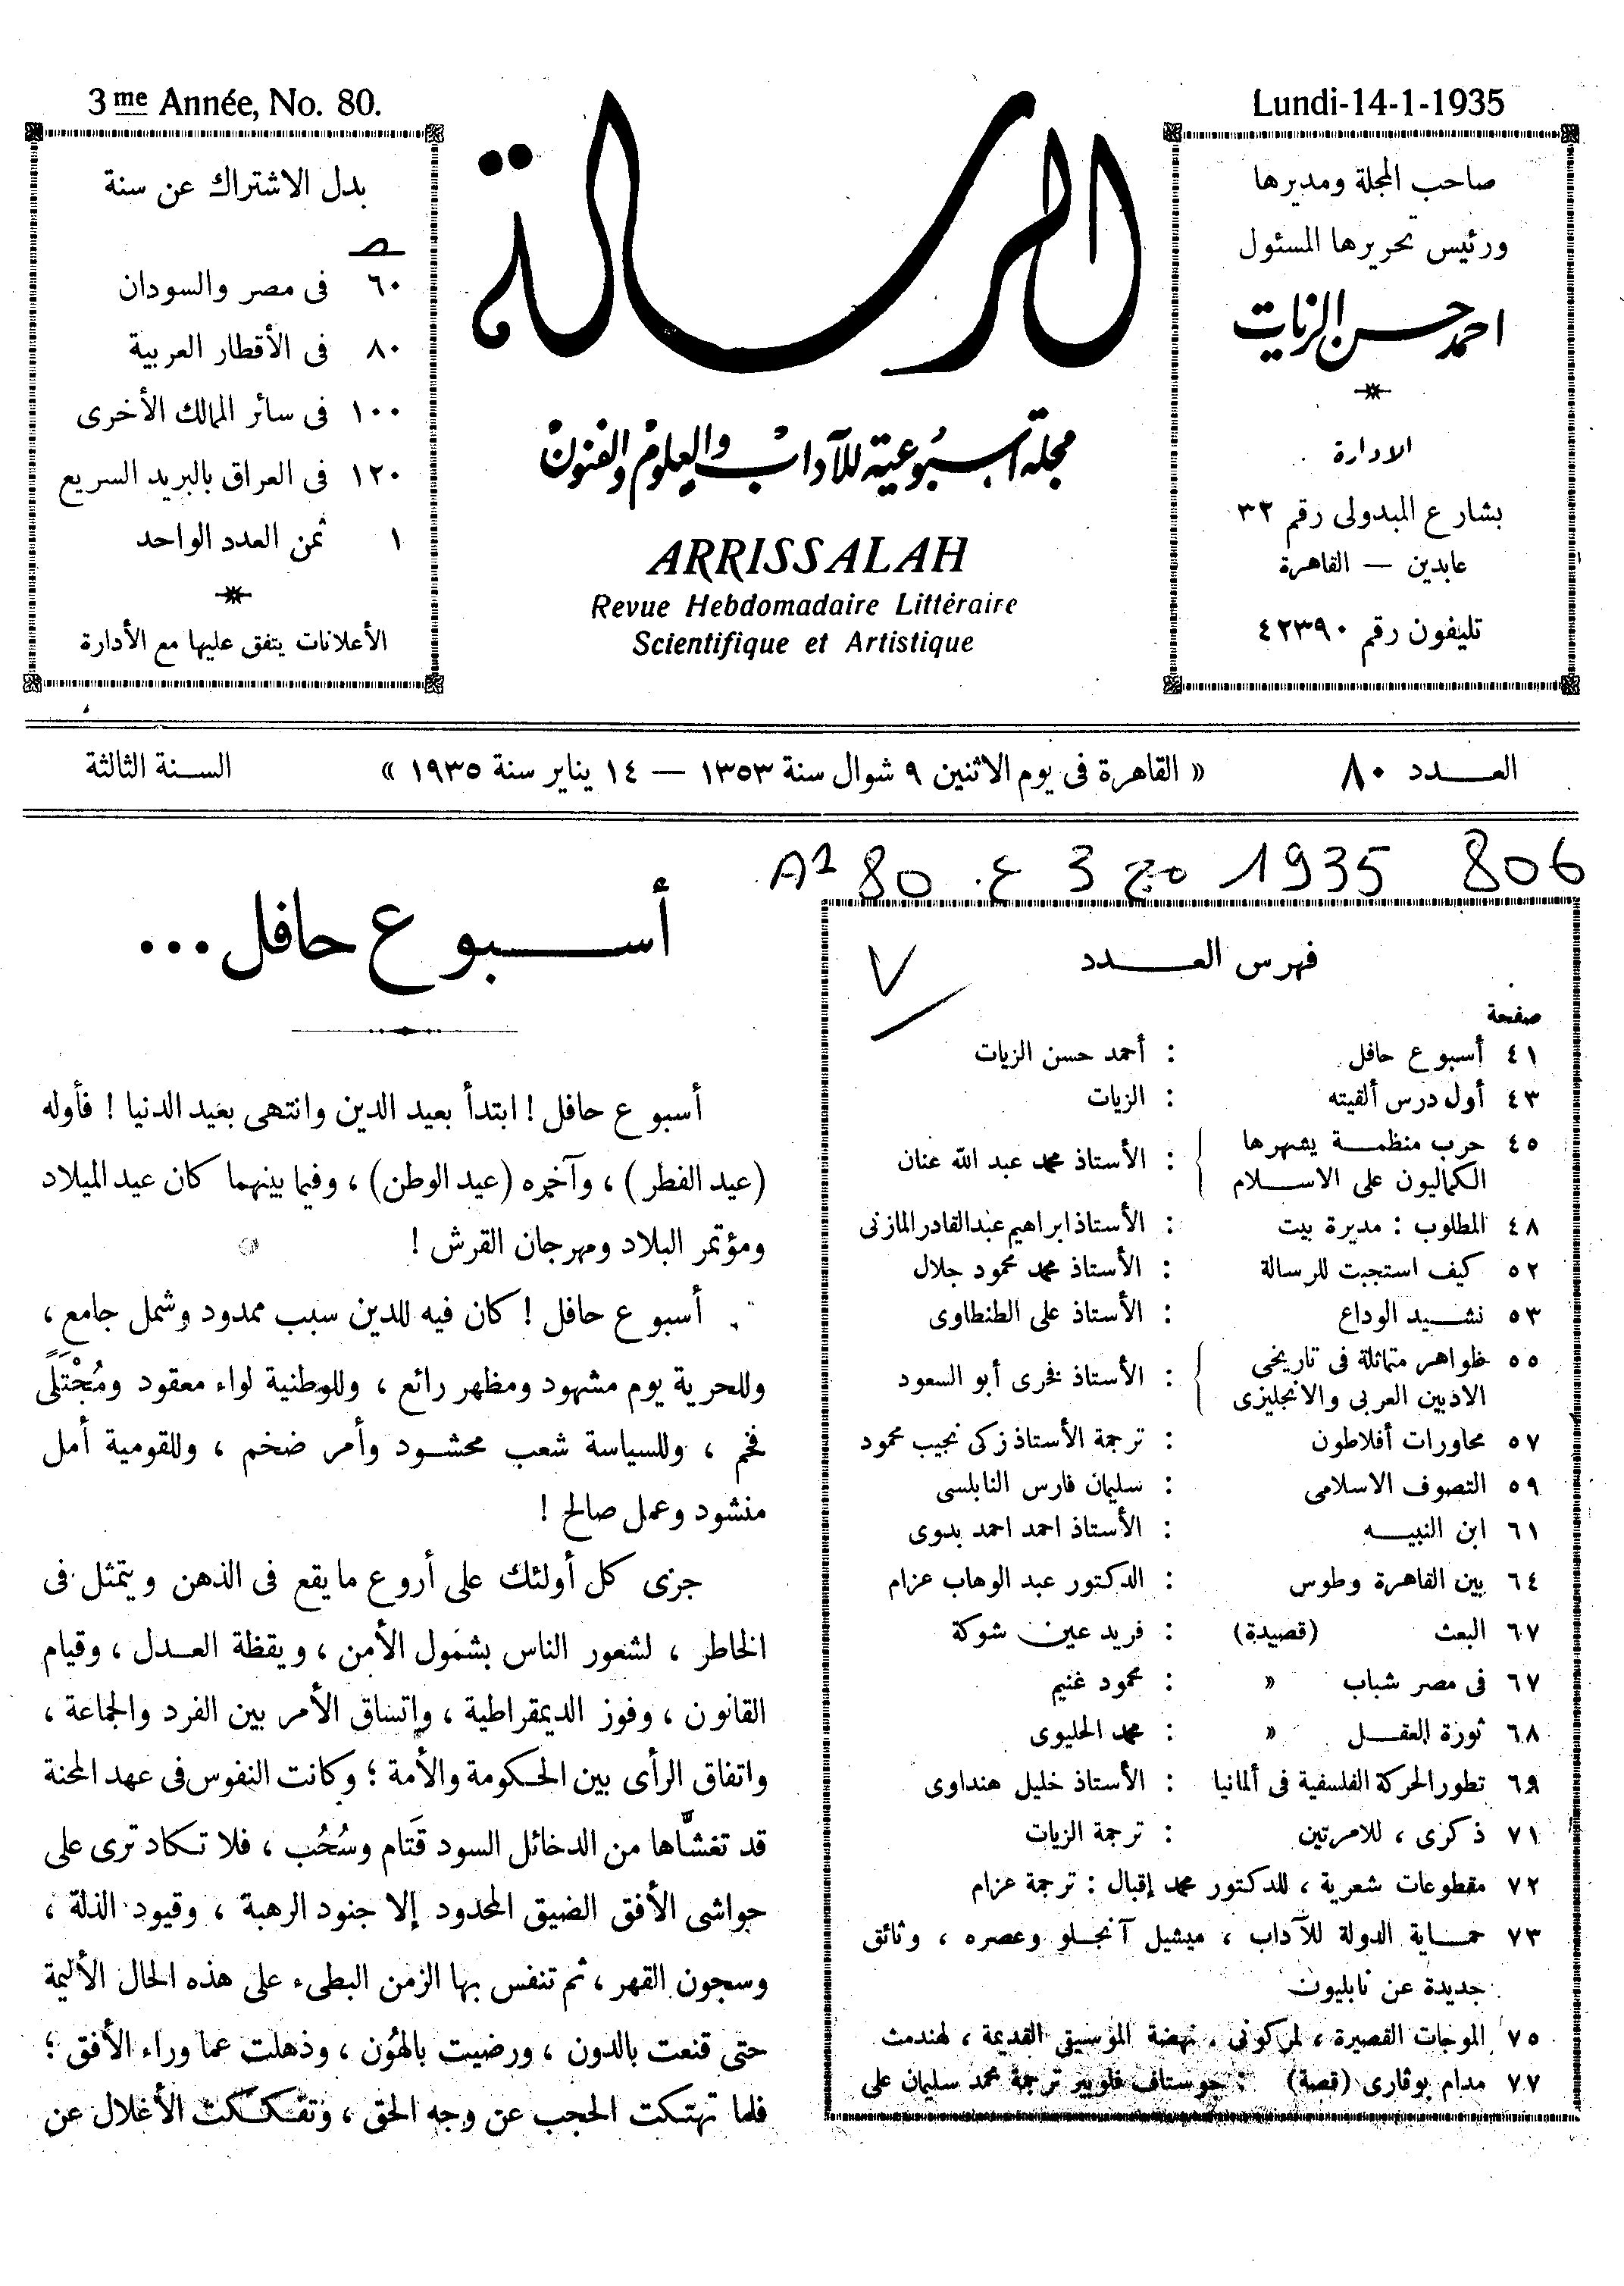 3me Année, No. 80.
Lundi-14-1-1935
صاحب المجلة ومديرها
ورئيس تحريرها المسئول
احمد حسن الزيات
الادارة
بشارع المبدولى رقم ٣٢
عابدين — القاهرة
تليفون رقم ٤٢٣٩٠
الرسالة
مجلة أسبوعية للآداب والعلوم والفنون
ARRISSALAH
Revue Hebdomadaire Littéraire
Scientifique et Artistique
بدل الاشتراك عن سنة
٦٠ فى مصر والسودان
٨٠ فى الأقطار العربية
١٠٠ فى سائر الممالك الأخرى
١٢٠ فى العراق بالبريد السريع
١ ثمن العدد الواحد
الأعلانات يتفق عليها مع الأدارة
العـــدد ٨٠ « القاهرة فى يوم الاثنين ٩ شوال سنة ١٣٥٣ — ١٤ يناير سنة ١٩٣٥ » السـنة الثالثة
806 1935 مج 3 ع. 80 A2
فهرس العـــدد
صفحة
٤١ أسبوع حافل : أحمد حسن الزيات
٤٣ أول درس ألقيته : الزيات
٤٥ حرب منظمـة يشهرها
الكماليون على الاسـلام : الأستاذ محمد عبد الله عنان
٤٨ المطلوب : مديرة بيت : الأستاذ ابراهيم عبدالقادر المازنى
٥٢ كيف استجبت للرسالة : الأستاذ محمد محمود جلال
٥٣ نشـيد الوداع : الأستاذ على الطنطاوى
٥٥ ظواهر متماثلة فى تاريخى
الادبين العربى والانجليزى : الأستاذ فخرى أبو السعود
٥٧ محاورات أفلاطون : ترجمة الأستاذ زكى نجيب محمود
٥٩ التصوف الاسلامى : سليمان فارس النابلسى
٦١ ابن النبيـه : الأستاذ احمد احمد بدوى
٦٤ بين القاهرة وطوس : الدكتور عبد الوهاب عزام
٦٧ البعث (قصيدة) : فريد عين شوكة
٦٧ فى مصر شباب » : محمود غنيم
٦٨ ثورة العقـل » : محمد الحليوى
٦٩ تطور الحركة الفلسفية فى ألمانيا : الأستاذ خليل هنداوى
٧١ ذكرى ، للامرتين : ترجمة الزيات
٧٢ مقطوعات شعرية ، للدكتور محمد إقبال : ترجمة عزام
٧٣ حمـاية الدولة للآداب ، ميشيل آنجـلو وعصره ، وثائق
جديدة عن نابليون
٧٥ الموجات القصيرة ، لمركونى . نهضة الموسيقى القديمة ، لهندمث
٧٧ مدام بوڤارى (قصة) : جوستاف فلوبير ترجمة محمد سليمان على
أســبوع حافل ...
أسبوع حافل ! ابتدأ بعيد الدين وانتهى بعيد الدنيا ! فأوله
(عيد الفطر) ، وآخره (عيد الوطن) ، وفيما بينهما كان عيد الميلاد
ومؤتمر البلاد ومهرجان القرش !
أسبوع حافل ! كان فيه للدين سبب ممدود وشمل جامع ،
وللحرية يوم مشهود ومظهر رائع ، وللوطنية لواء معقود ومُجْتَلًى
فخم ، وللسياسة شعب محشـود وأمر ضخم ، وللقومية أمل
منشود وعمل صالح !
جرى كل أولئك على أروع ما يقع فى الذهن ويتمثل فى
الخاطر ، لشعور الناس بشمول الأمن ، ويقظة العـدل ، وقيام
القانون ، وفوز الديمقراطية ، واتساق الأمر بين الفرد والجماعة ،
واتفاق الرأى بين الحـكومة والأمة ؛ وكانت النفوس فى عهد المحنة
قد تغشّاها من الدخائل السود قَتام وسُحُب ، فلا تـكاد ترى على
حواشى الأفق الضيق المحدود إلا جنود الرهبة ، وقيود الذلة ،
وسجون القهر ، ثم تنفس بها الزمن البطىء على هذه الحال الأليمة
حتى قنعت بالدون ، ورضيت بالهُون ، وذهلت عما وراء الأفق ؛
فلما تهتـكت الحجب عن وجه الحق ، وتفـكـكت الأغلال عن